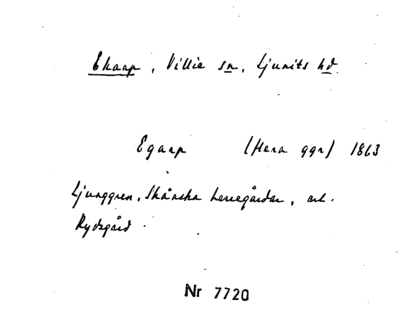 Ekaap, Villie sn, Ljunits hd.
Egaap (flera ggr) 1863
Ljunggren, Skånska herregårdar, art.
Rydsgård.
Nr 7720